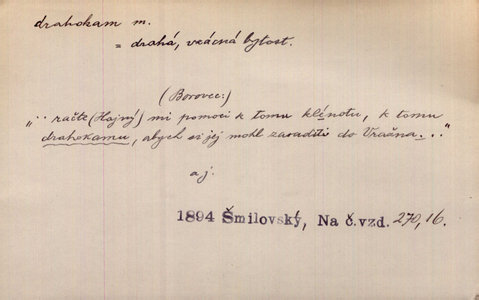 drahokam m.
= drahá, vzácná bytost.
(Borovec:)
„ ·· račte (Hajný) mi pomoci k tomu klénotu, k tomu
drahokamu, abych si jej mohl zasaditi do Vračna..."
a j.
1894 Šmilovský, Na č.vzd. 270,16.